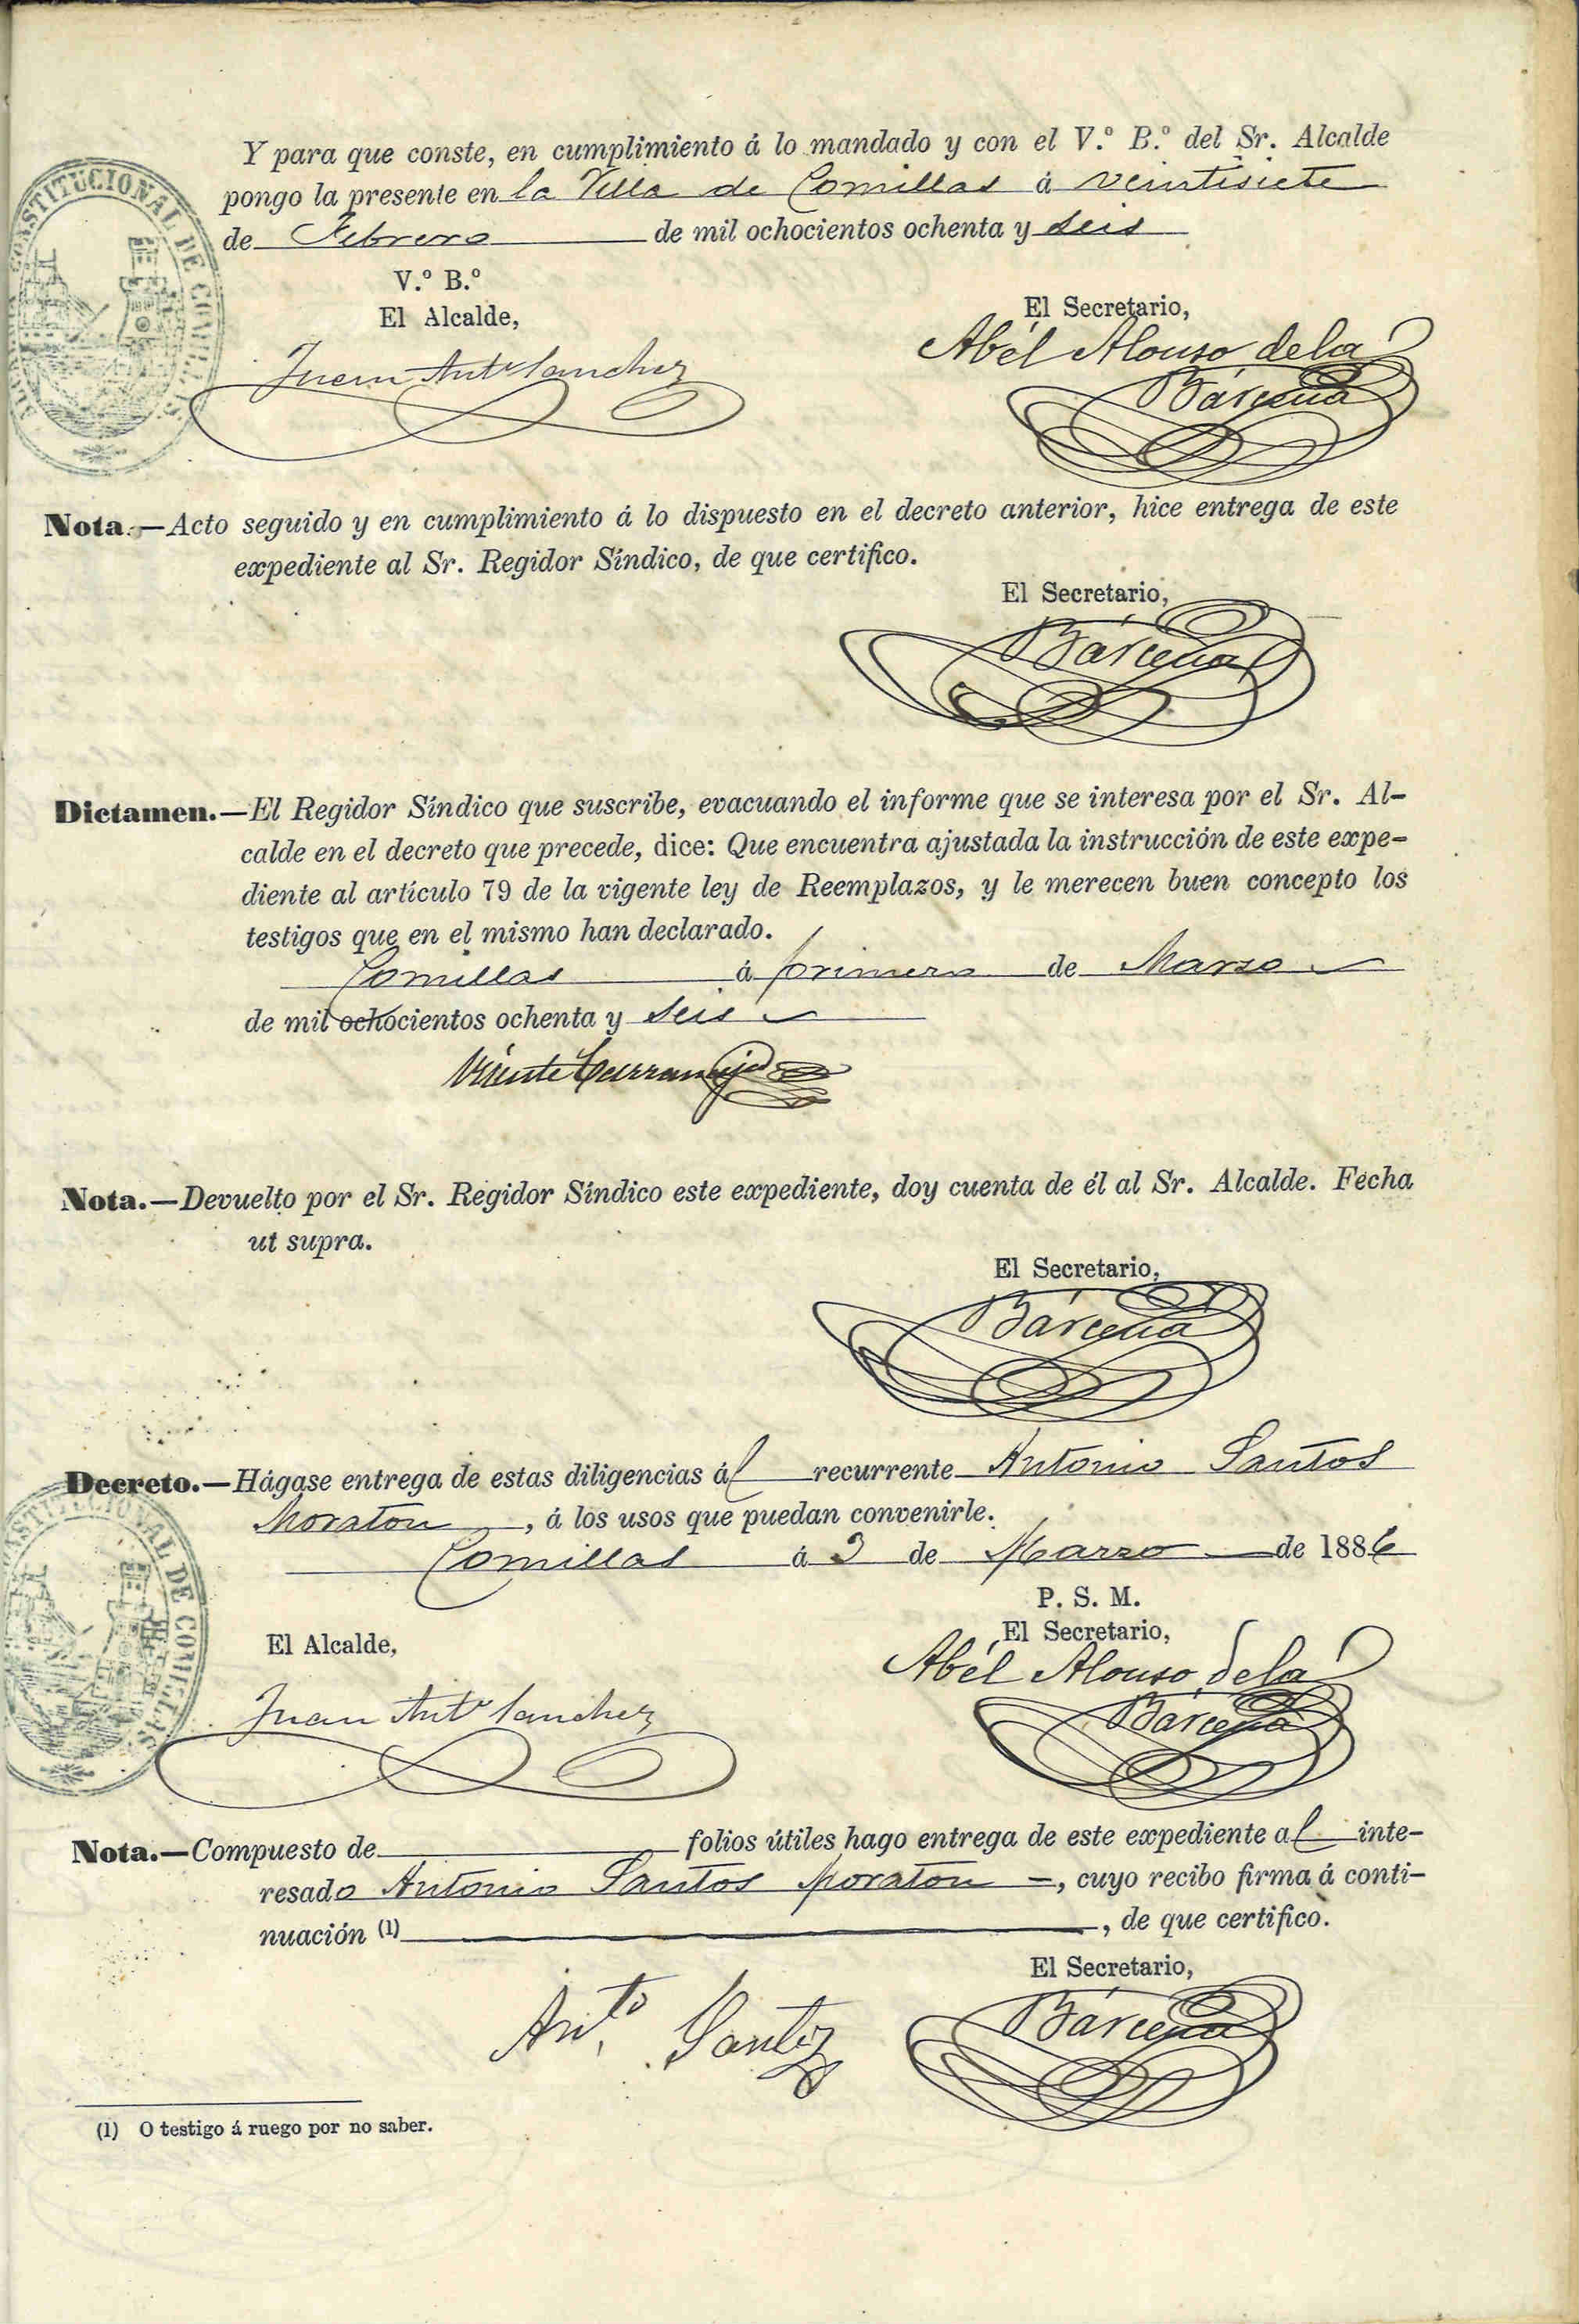 Y para que conste, en cumplimiento á lo mandado y con el V.º B.º del Sr. Alcalde
pongo la presente en la Villa de Comillas á veintisiete
de Febrero de mil ochocientos ochenta y seis
V.º B.º
El Alcalde,
El Secretario,
Juan Antº Sanchez
Abél Alonso de la
Bárcena
CONSTITUCIONAL DE COMILLAS
Nota.—Acto seguido y en cumplimiento á lo dispuesto en el decreto anterior, hice entrega de este
expediente al Sr. Regidor Síndico, de que certifico.
El Secretario,
Bárcena
Dictamen.—El Regidor Síndico que suscribe, evacuando el informe que se interesa por el Sr. Al-
calde en el decreto que precede, dice: Que encuentra ajustada la instrucción de este expe-
diente al artículo 79 de la vigente ley de Reemplazos, y le merecen buen concepto los
testigos que en el mismo han declarado.
Comillas á primero de Marzo
de mil ochocientos ochenta y seis
Vicente
Nota.—Devuelto por el Sr. Regidor Síndico este expediente, doy cuenta de él al Sr. Alcalde. Fecha
ut supra.
El Secretario,
Bárcena
Decreto.—Hágase entrega de estas diligencias ál recurrente Antonio Santos
Moraton, á los usos que puedan convenirle.
Comillas á 3 de Marzo de 1886
P. S. M.
El Alcalde,
El Secretario,
Juan Antº Sanchez
Abél Alonso de la
Bárcena
CONSTITUCIONAL DE COMILLAS
Nota.—Compuesto de folios útiles hago entrega de este expediente al inte-
resado Antonio Santos Moraton, cuyo recibo firma á conti-
nuación (1), de que certifico.
El Secretario,
Antº Santos
Bárcena
(1) O testigo á ruego por no saber.